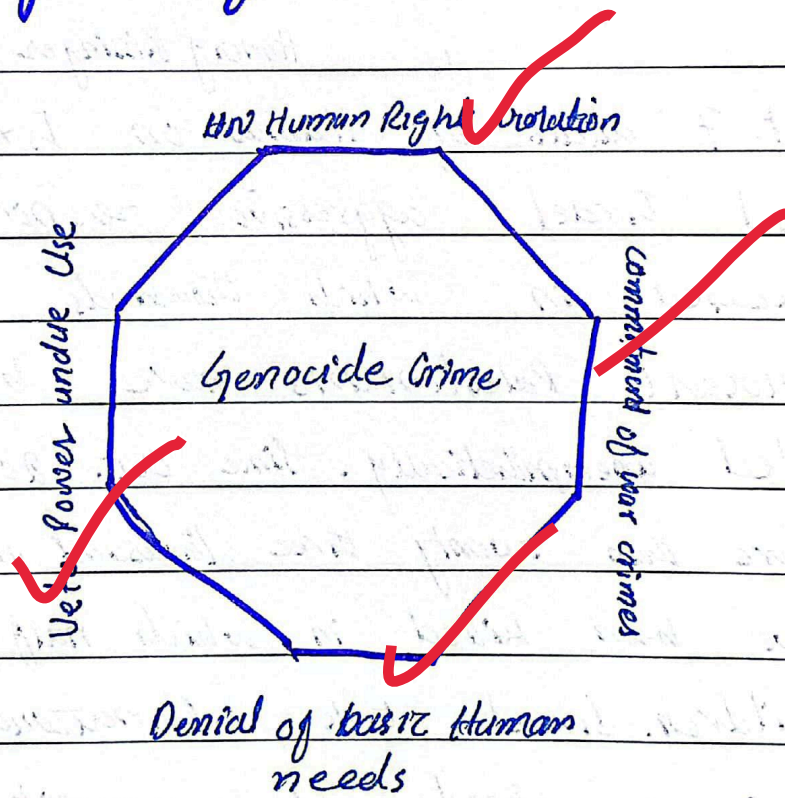 HN Human Right violation
Veto Power undue Use
Genocide Crime
of war crimes
Denial of basic Human
needs